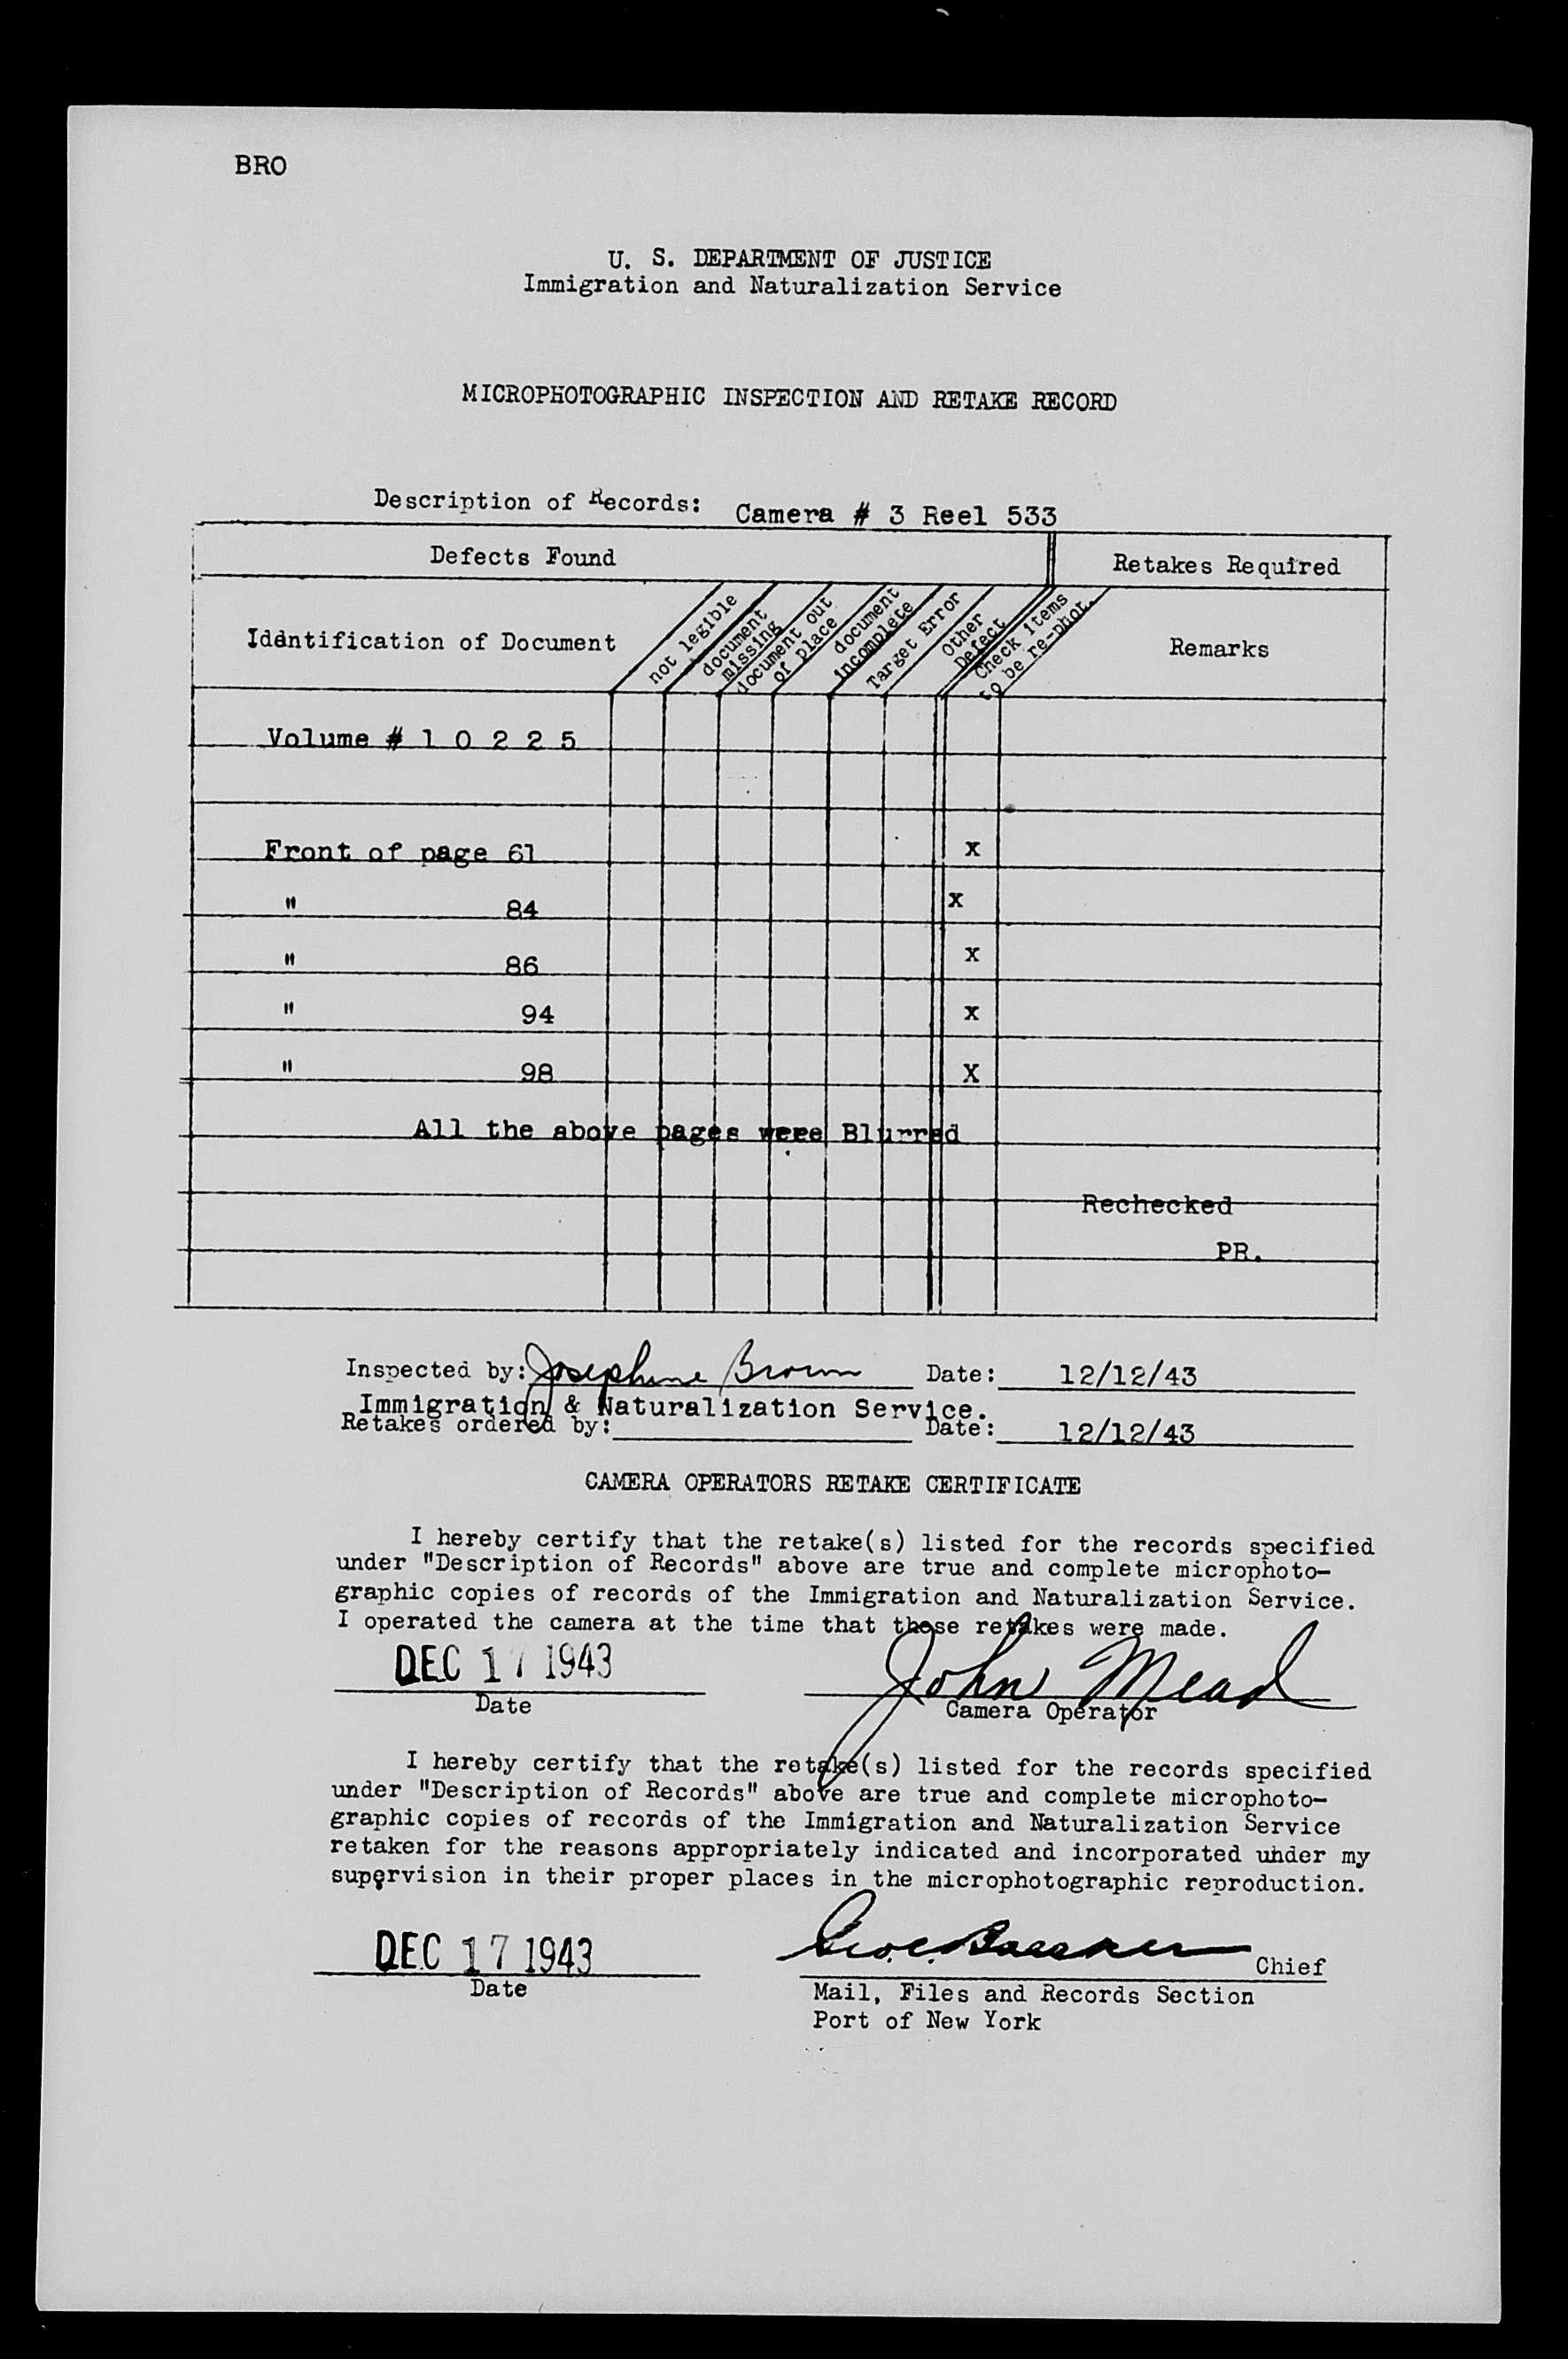 BRO
U. S. DEPARTMENT OF JUSTICE
Immigration and Naturalization Service
MICROPHOTOGRAPHIC INSPECTION AND RETAKE RECORD
Description of Records: Camera # 3 Reel 533
Defects Found
Retakes Required
Identification of Document
not legible
document
missing
document out
of place
document
incomplete
Target Error
Other
Defect
Check items
to be re-phot.
Remarks
Volume # 1 0 2 2 5
Front of page 61 x
" 84 x
" 86 x
" 94 x
" 98 X
All the above pages were Blurred
Rechecked
PR.
Inspected by: Josephine Brown Date: 12/12/43
Immigration & Naturalization Service.
Retakes ordered by: Date: 12/12/43
CAMERA OPERATORS RETAKE CERTIFICATE
I hereby certify that the retake(s) listed for the records specified
under "Description of Records" above are true and complete microphoto-
graphic copies of records of the Immigration and Naturalization Service.
I operated the camera at the time that these retakes were made.
DEC 17 1943 John Mead
Date Camera Operator
I hereby certify that the retake(s) listed for the records specified
under "Description of Records" above are true and complete microphoto-
graphic copies of records of the Immigration and Naturalization Service
retaken for the reasons appropriately indicated and incorporated under my
supervision in their proper places in the microphotographic reproduction.
DEC 17 1943 Chief
Date
Mail, Files and Records Section
Port of New York